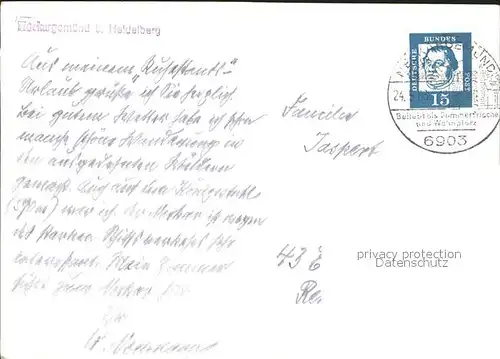 Neckargemünd b. Heidelberg
Aus meinem "Ruhestands"-
Urlaub grüße ich Sie herzlich.
Bei gutem Wetter habe ich schon
manche schöne Wanderung in
den ausgedehnten Wäldern
gemacht. Auch auf dem Königstuhl
war ich. Der Neckar ist wegen
des starken Schiffsverkehrs sehr
interessant. Mein Zimmer
zum Neckar
Ihr
DEUTSCHE BUNDES POST
15
24.
Beliebt als Sommerfrische
und Wohnplatz
6903
Familie
Jaspert
43
Re
privacy protection
Datenschutz